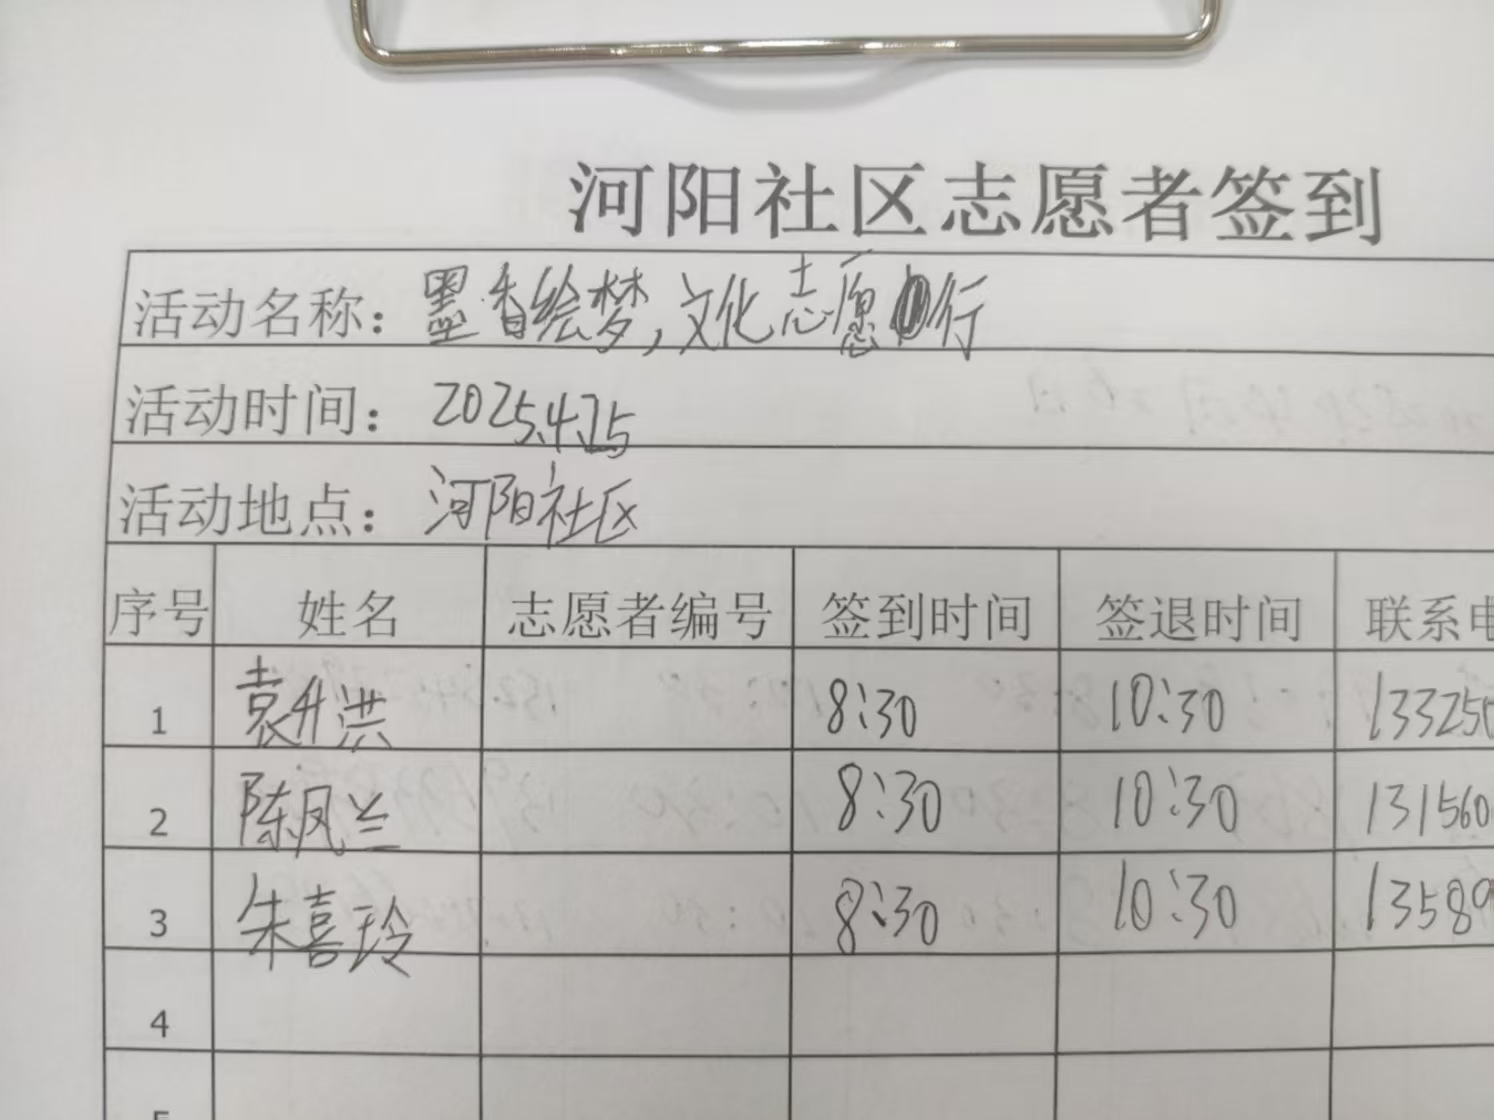 河阳社区志愿者签到
活动名称：墨香绘梦，文化志愿行
活动时间：2025.4.25
活动地点：河阳社区
序号 姓名 志愿者编号 签到时间 签退时间 联系电
1 袁升洪 8:30 10:30 133250
2 陈凤兰 8:30 10:30 131560
3 朱喜玲 8:30 10:30 13589
4
5